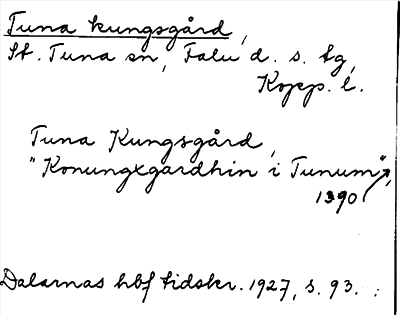 Tuna kungsgård,
St. Tuna sn, Falu d. s. tg,
Kopp. l.
Tuna Kungsgård,
"Konungxgardhin i Tunum",
1390
Dalarnas hbf tidskr. 1927, s. 93.